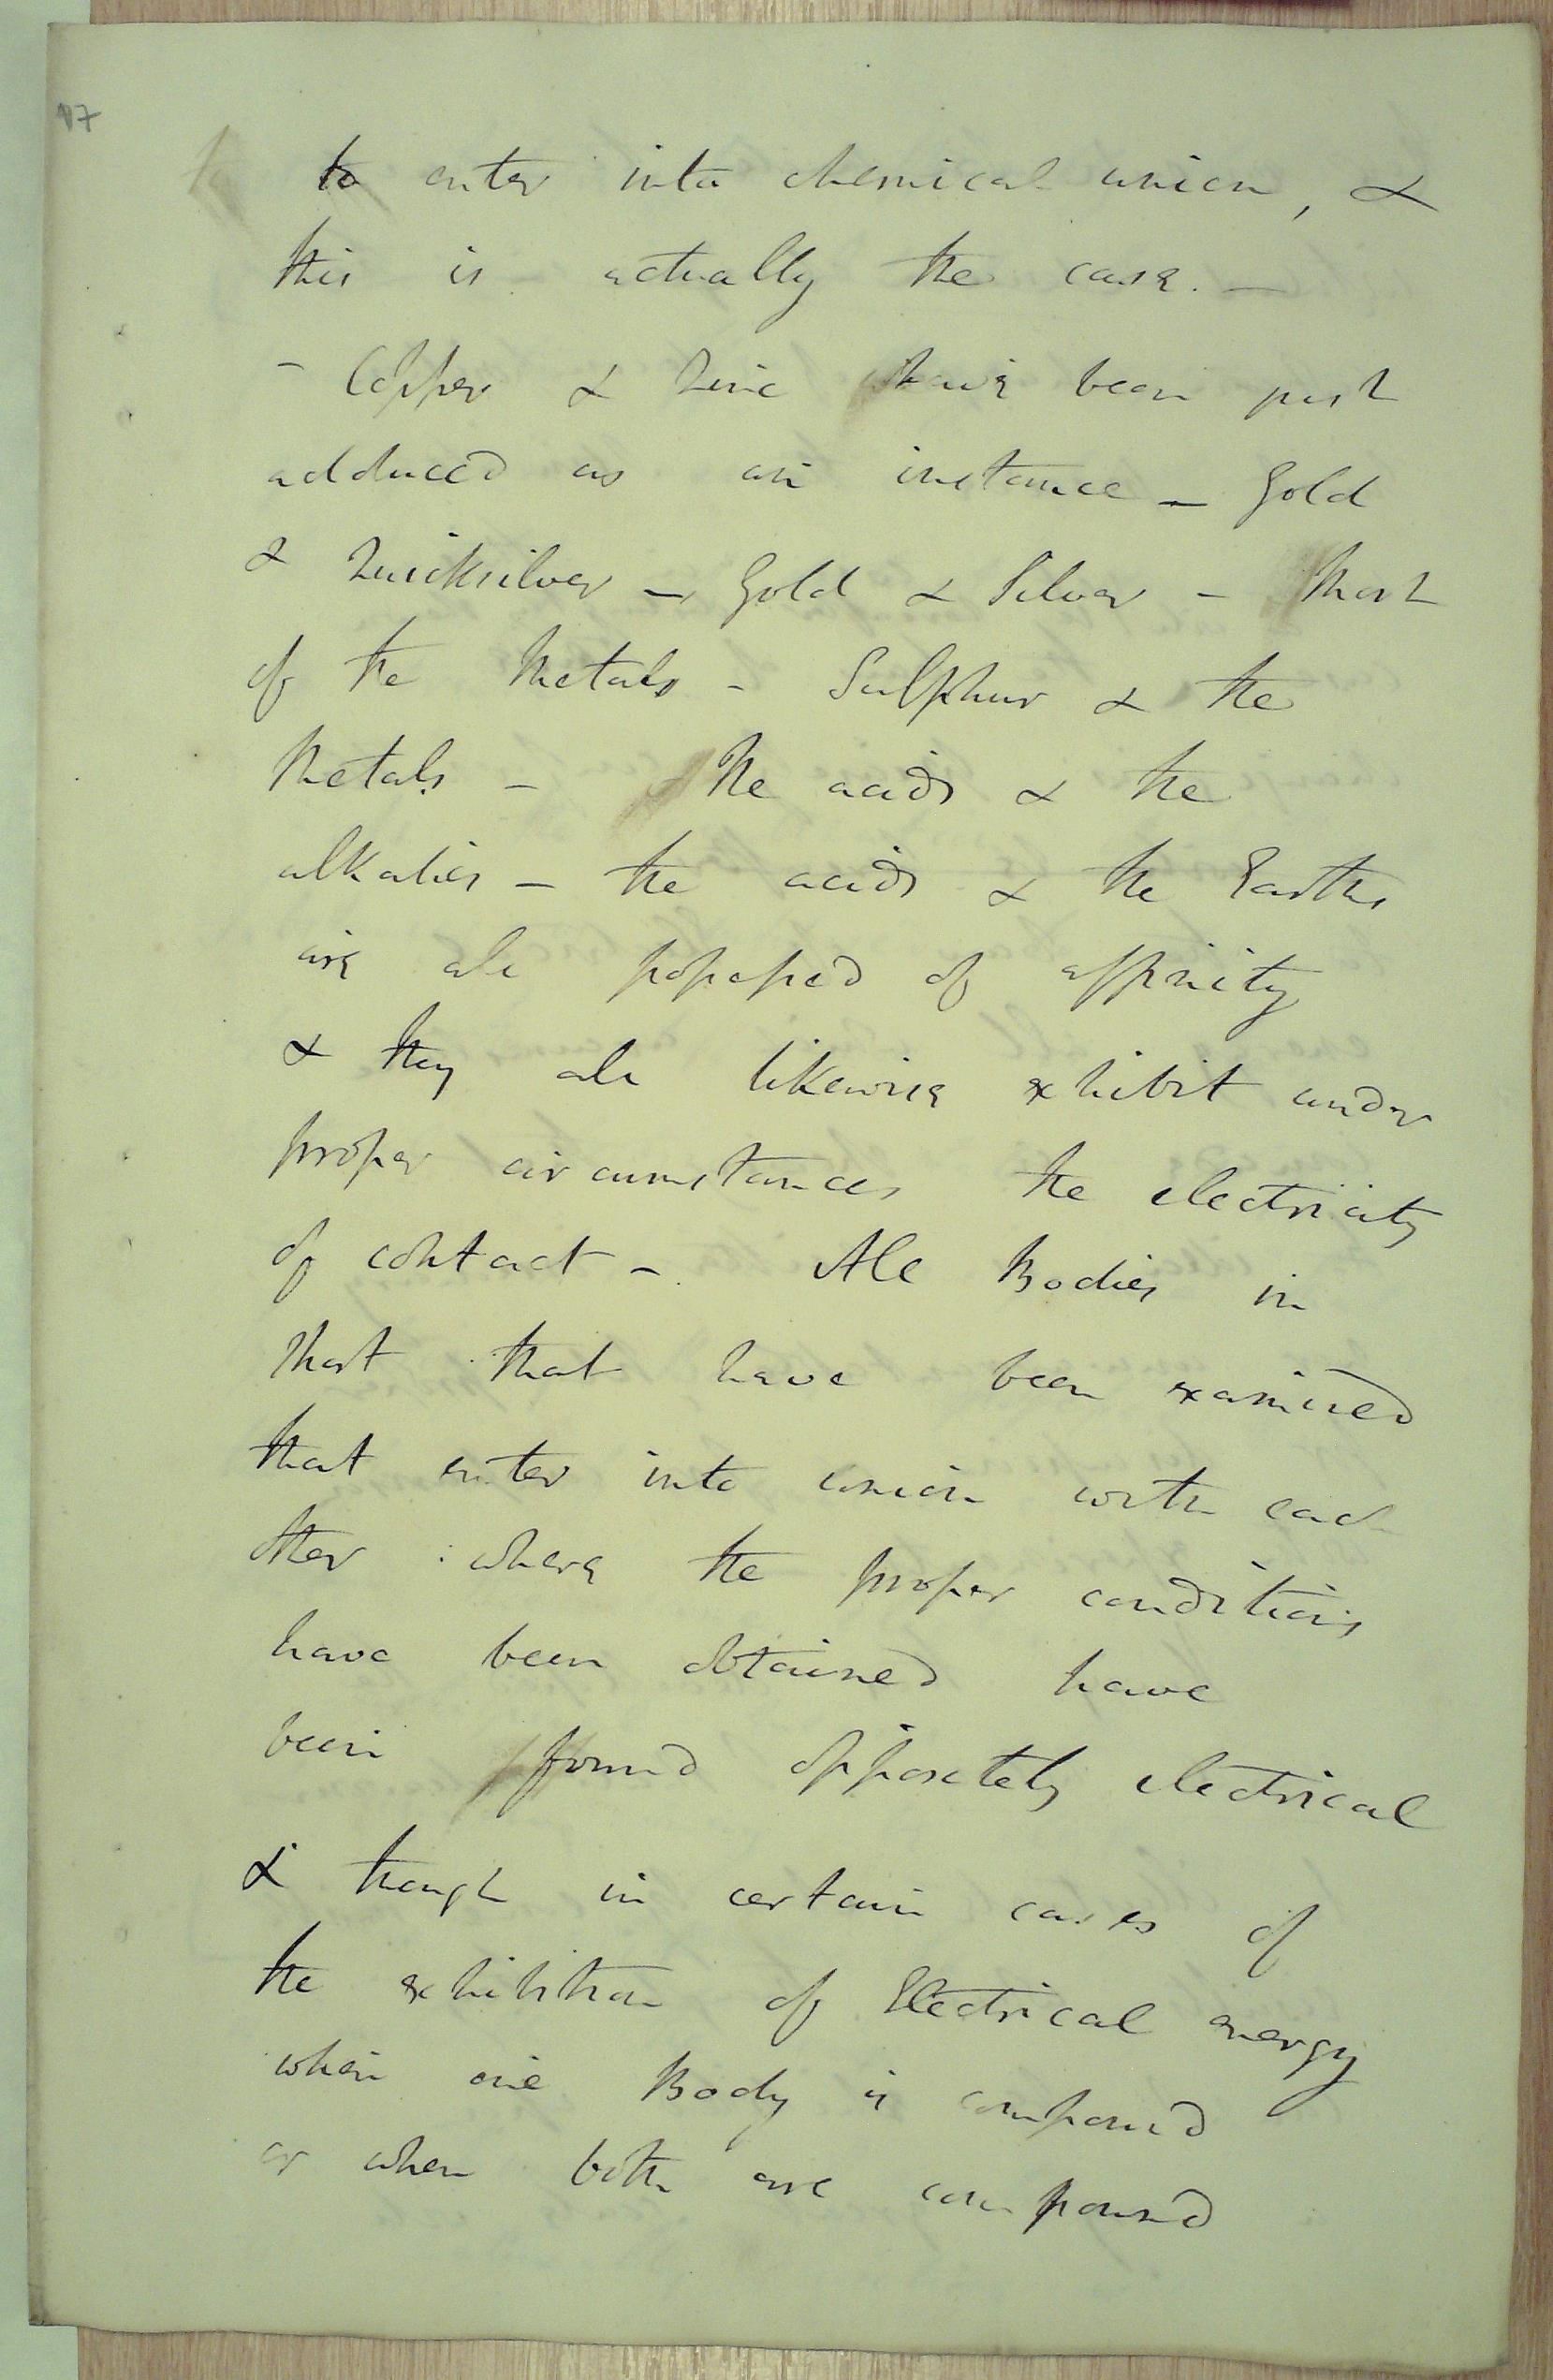 17
to enter into chemical union, &
this is actually the case. —
- Copper & Zinc have been just
adduced as an instance — Gold
& Quicksilver — Gold & Silver - Most
of the Metals - Sulphur & the
Metals - The acids & the
alkalies — the acids & the Earths
are all possessed of affinity
& they all likewise exhibit under
proper circumstances the electricity
of contact -. All Bodies in
short that have been examined
that enter into union with each
other where the proper conditions
have been obtained have
been found oppositely electrical
& though in certain cases of
the exhibition of Electrical energy
when one Body is compound
or when both are compound